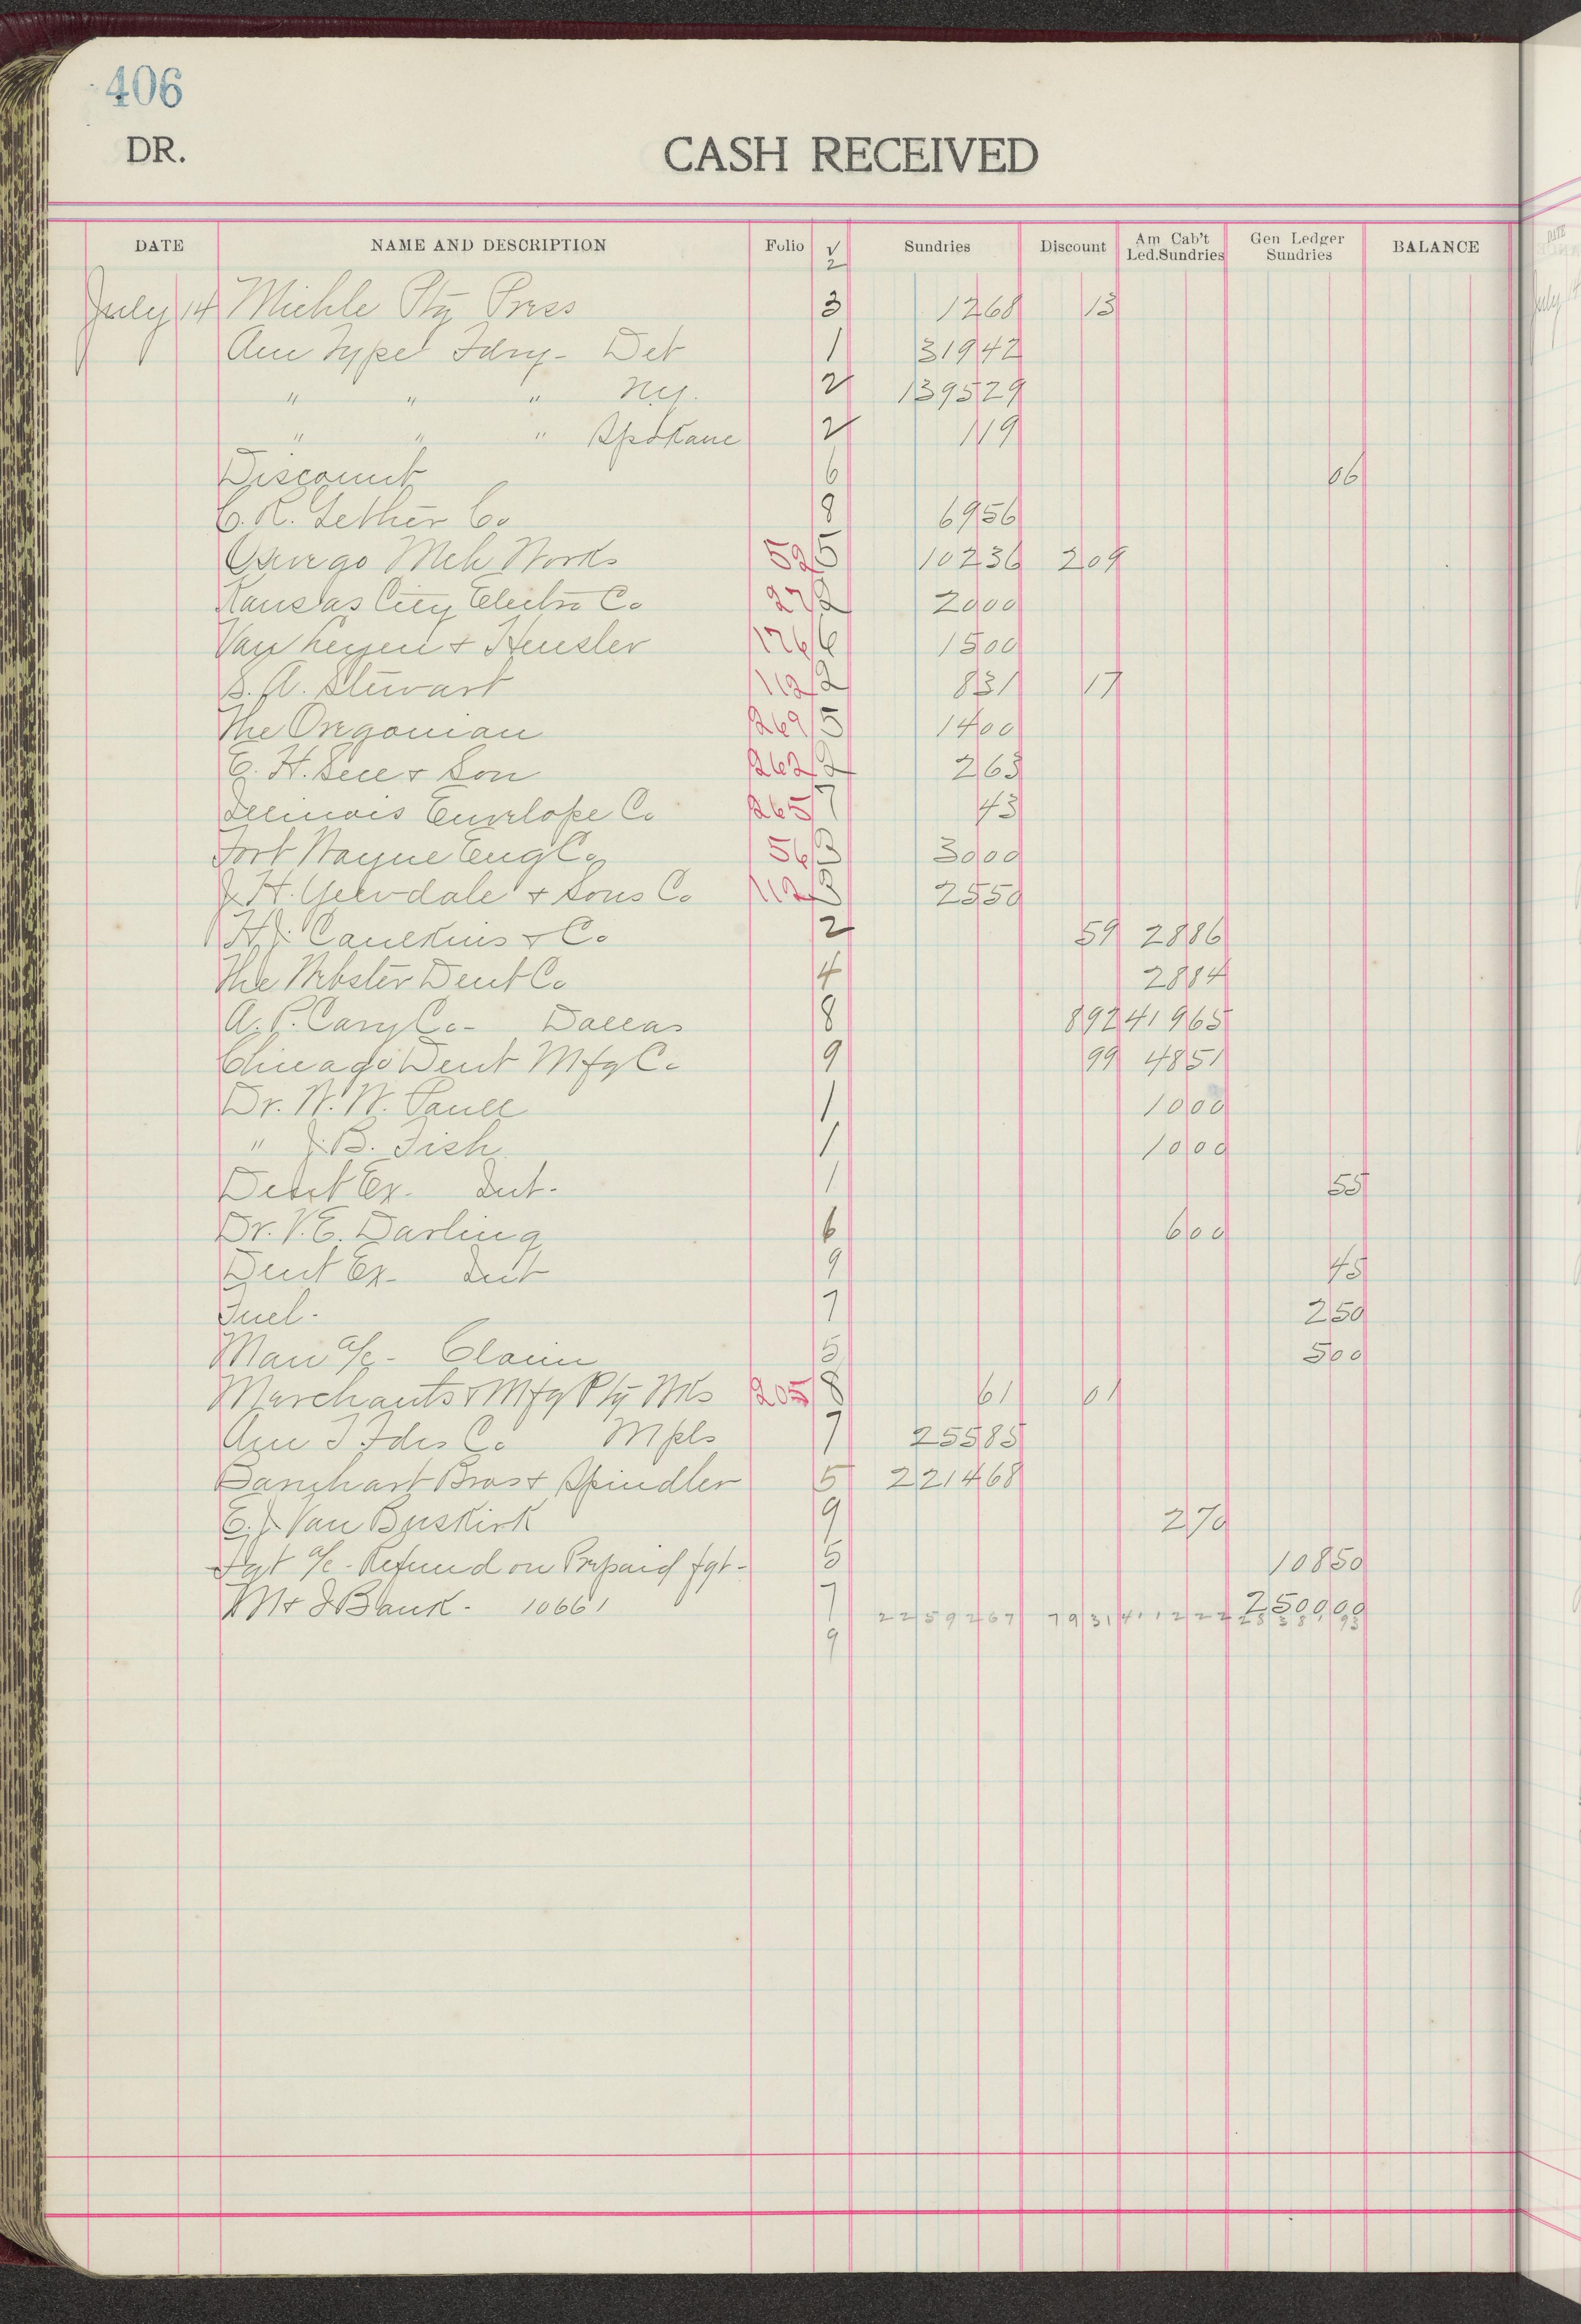 406
DR. CASH RECEIVED
DATE NAME AND DESCRIPTION Folio √ Sundries Discount Am Cab't Led.Sundries Gen Ledger Sundries BALANCE
2
July 14 Miehle Ptg Press 3 12 68 13
Am Type Fdry - Det 1 319 42
" " " N.Y. 2 1395 29
" " " Spokane 2 1 19
Discount 6 06
C. R. Gether Co 8 69 56
Oswego Mch Works 52 5 102 36 2 09
Kansas City Electro Co 27 2 20 00
Van Leyen & Hensler 176 6 15 00
S. A. Stewart 112 2 8 31 17
The Oregonian 269 5 14 00
E. H. & Son 262 2 2 63
Illinois Envelope Co 265 7 43
Fort Wayne Eng Co 56 3 30 00
J. H. & Sons Co 112 3 25 50
H. J. Caulkins & Co 2 59 28 86
The Webster Dent Co 4 28 84
A. P. Cary Co - Dallas 8 8 92 419 65
Chicago Dent Mfg Co 9 99 48 51
Dr. W. W. Paull 1 10 00
" J. B. Fish 1 10 00
Dent Ex. Int. 1 55
Dr. V. E. Darling 6 6 00
Dent Ex - Int 9 45
Fuel - 7 2 50
Man a/c - Claim 5 5 00
Merchants & Mfg Ptg Wks 205 8 61 01
Am T Fdrs Co Mpls 7 255 85
Barnhart Bros & Spindler 5 2214 68
E. J. Van Buskirk 9 2 70
Fgt a/c - Refund on Prepaid fgt - 5 108 50
M & I Bank - 10661 7 2500 00
9 22592 67 79 31 411 2 22